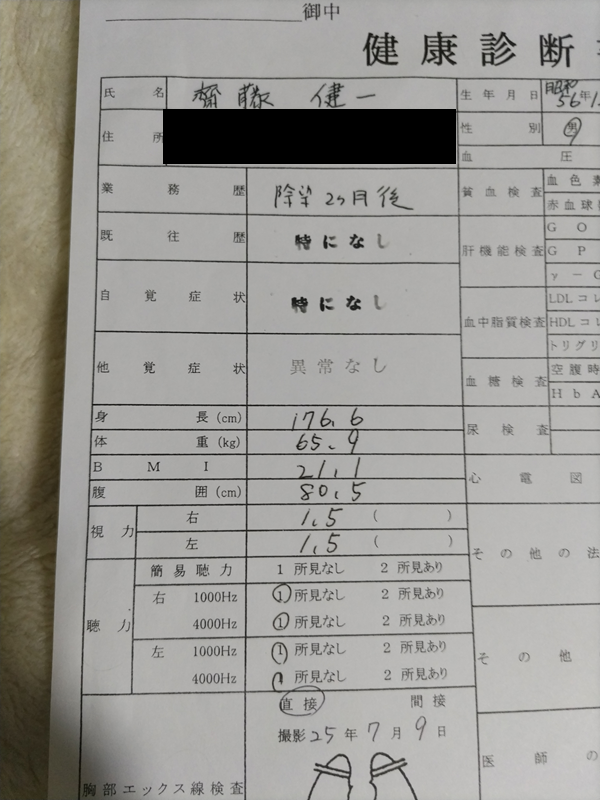 御中
健康診断
氏名 齋藤 健一
生年月日 昭和56年1.
住所
性別 男
血圧
業務歴 除染2ヶ月後
貧血検査 血色素
赤血球
既往歴 特になし
肝機能検査 GO
GP
γ-G
自覚症状 特になし
血中脂質検査 LDLコレ
HDLコレ
トリグリ
他覚症状 異常なし
血糖検査 空腹時
HbA
身長(cm) 176.6
尿検査
体重(kg) 65.9
BMI 21.1
心電図
腹囲(cm) 80.5
視力 右 1.5 ( )
左 1.5 ( )
その他の法
聴力 簡易聴力 1 所見なし 2 所見あり
右 1000Hz 1 所見なし 2 所見あり
4000Hz 1 所見なし 2 所見あり
左 1000Hz 1 所見なし 2 所見あり
その他
4000Hz 1 所見なし 2 所見あり
直接 間接
撮影 25年 7月 9日
医師の
胸部エックス線検査